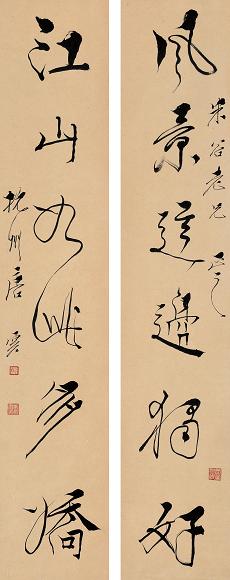 風景這邊獨好
谷老兄 正之
江山如此多嬌
杭州唐雲